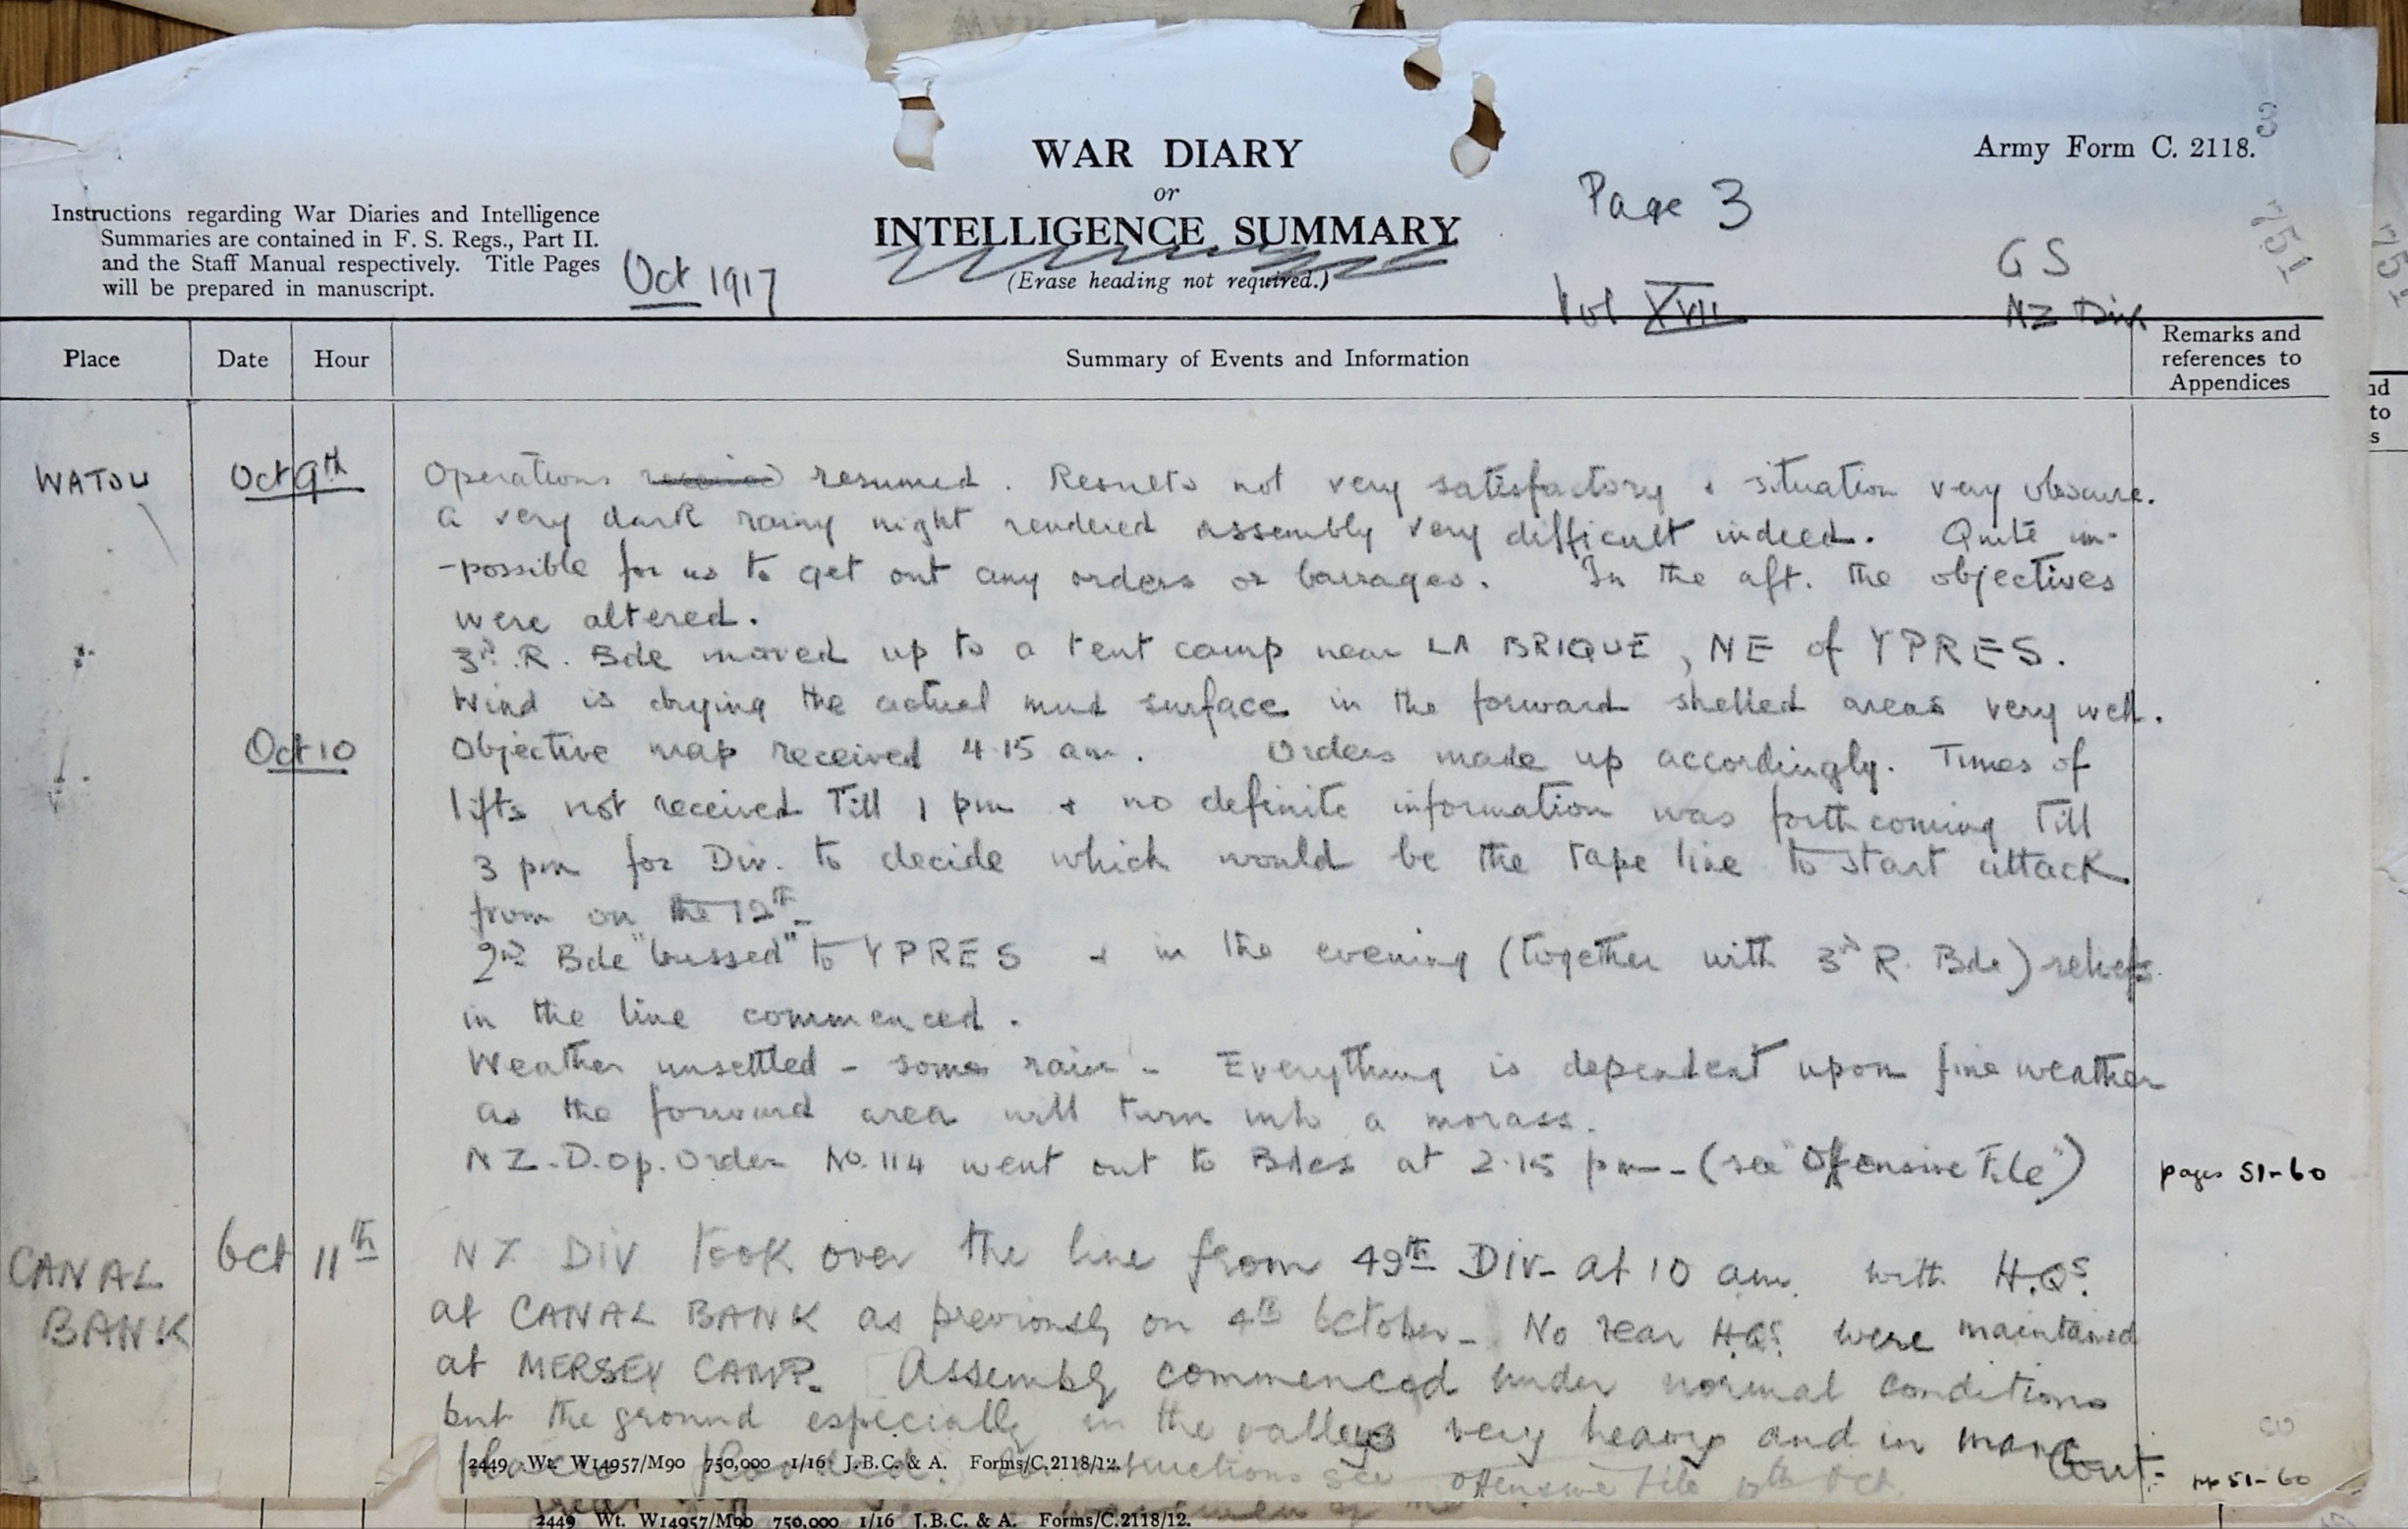 Army Form C. 2118.
3
WAR DIARY
or
INTELLIGENCE SUMMARY
(Erase heading not required.)
Page 3
Vol XVII
GS
NZ Div
751
Instructions regarding War Diaries and Intelligence
Summaries are contained in F. S. Regs., Part II.
and the Staff Manual respectively. Title Pages
will be prepared in manuscript.
Oct 1917
Place Date Hour Summary of Events and Information Remarks and
references to
Appendices
WATOU Oct 9th Operations resumed. Results not very satisfactory & situation very obscure.
A very dark rainy night rendered assembly very difficult indeed. Quite im-
-possible for us to get out any orders or barrages. In the aft. the objectives
were altered.
3rd. R. Bde moved up to a tent camp near LA BRIQUE, NE of YPRES.
Wind is drying the actual mud surface in the forward shelled areas very well.
Oct 10 Objective map received 4.15 am. Orders made up accordingly. Times of
lifts not received till 1 pm & no definite information was forthcoming till
3 pm for Div. to decide which would be the tape line to start attack
from on the 12th
2nd Bde "bussed" to YPRES & in the evening (together with 3rd R. Bde) reliefs
in the line commenced.
Weather unsettled - some rain - Everything is dependent upon fine weather
as the forward area will turn into a morass.
NZ.D.Op.Order No.114 went out to Bdes at 2.15 pm - (see "Offensive File") pages 51-60
CANAL
BANK Oct 11th NZ DIV took over the line from 49th Div- at 10 am. with H.Qs.
at CANAL BANK as previously on 4th October - No rear H.Qs. were maintained
at MERSEY CAMP. Assembly commenced under normal conditions
but the ground especially in the valleys very heavy and in many
places flooded. instructions see offensive File Oct. Cont. pp 51-60
2449 Wt. W14957/M90 750,000 1/16 J.B.C. & A. Forms/C.2118/12.
2449 Wt. W14957/M90 750,000 1/16 J.B.C. & A. Forms/C.2118/12.